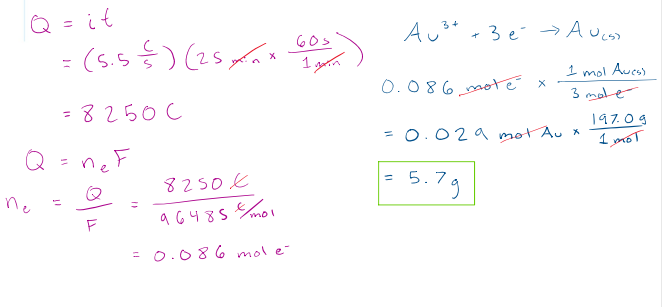 Q = it
= (5.5 C/s) (25 min × 60s/1 min)
= 8250 C
Q = nₑF
nₑ = Q/F = 8250 C/96485 C/mol
= 0.086 mol e⁻
Au³⁺ + 3e⁻ → Au(s)
0.086 mol e⁻ × 1 mol Au(s)/3 mol e⁻
= 0.029 mol Au × 197.0g/1 mol
= 5.7g